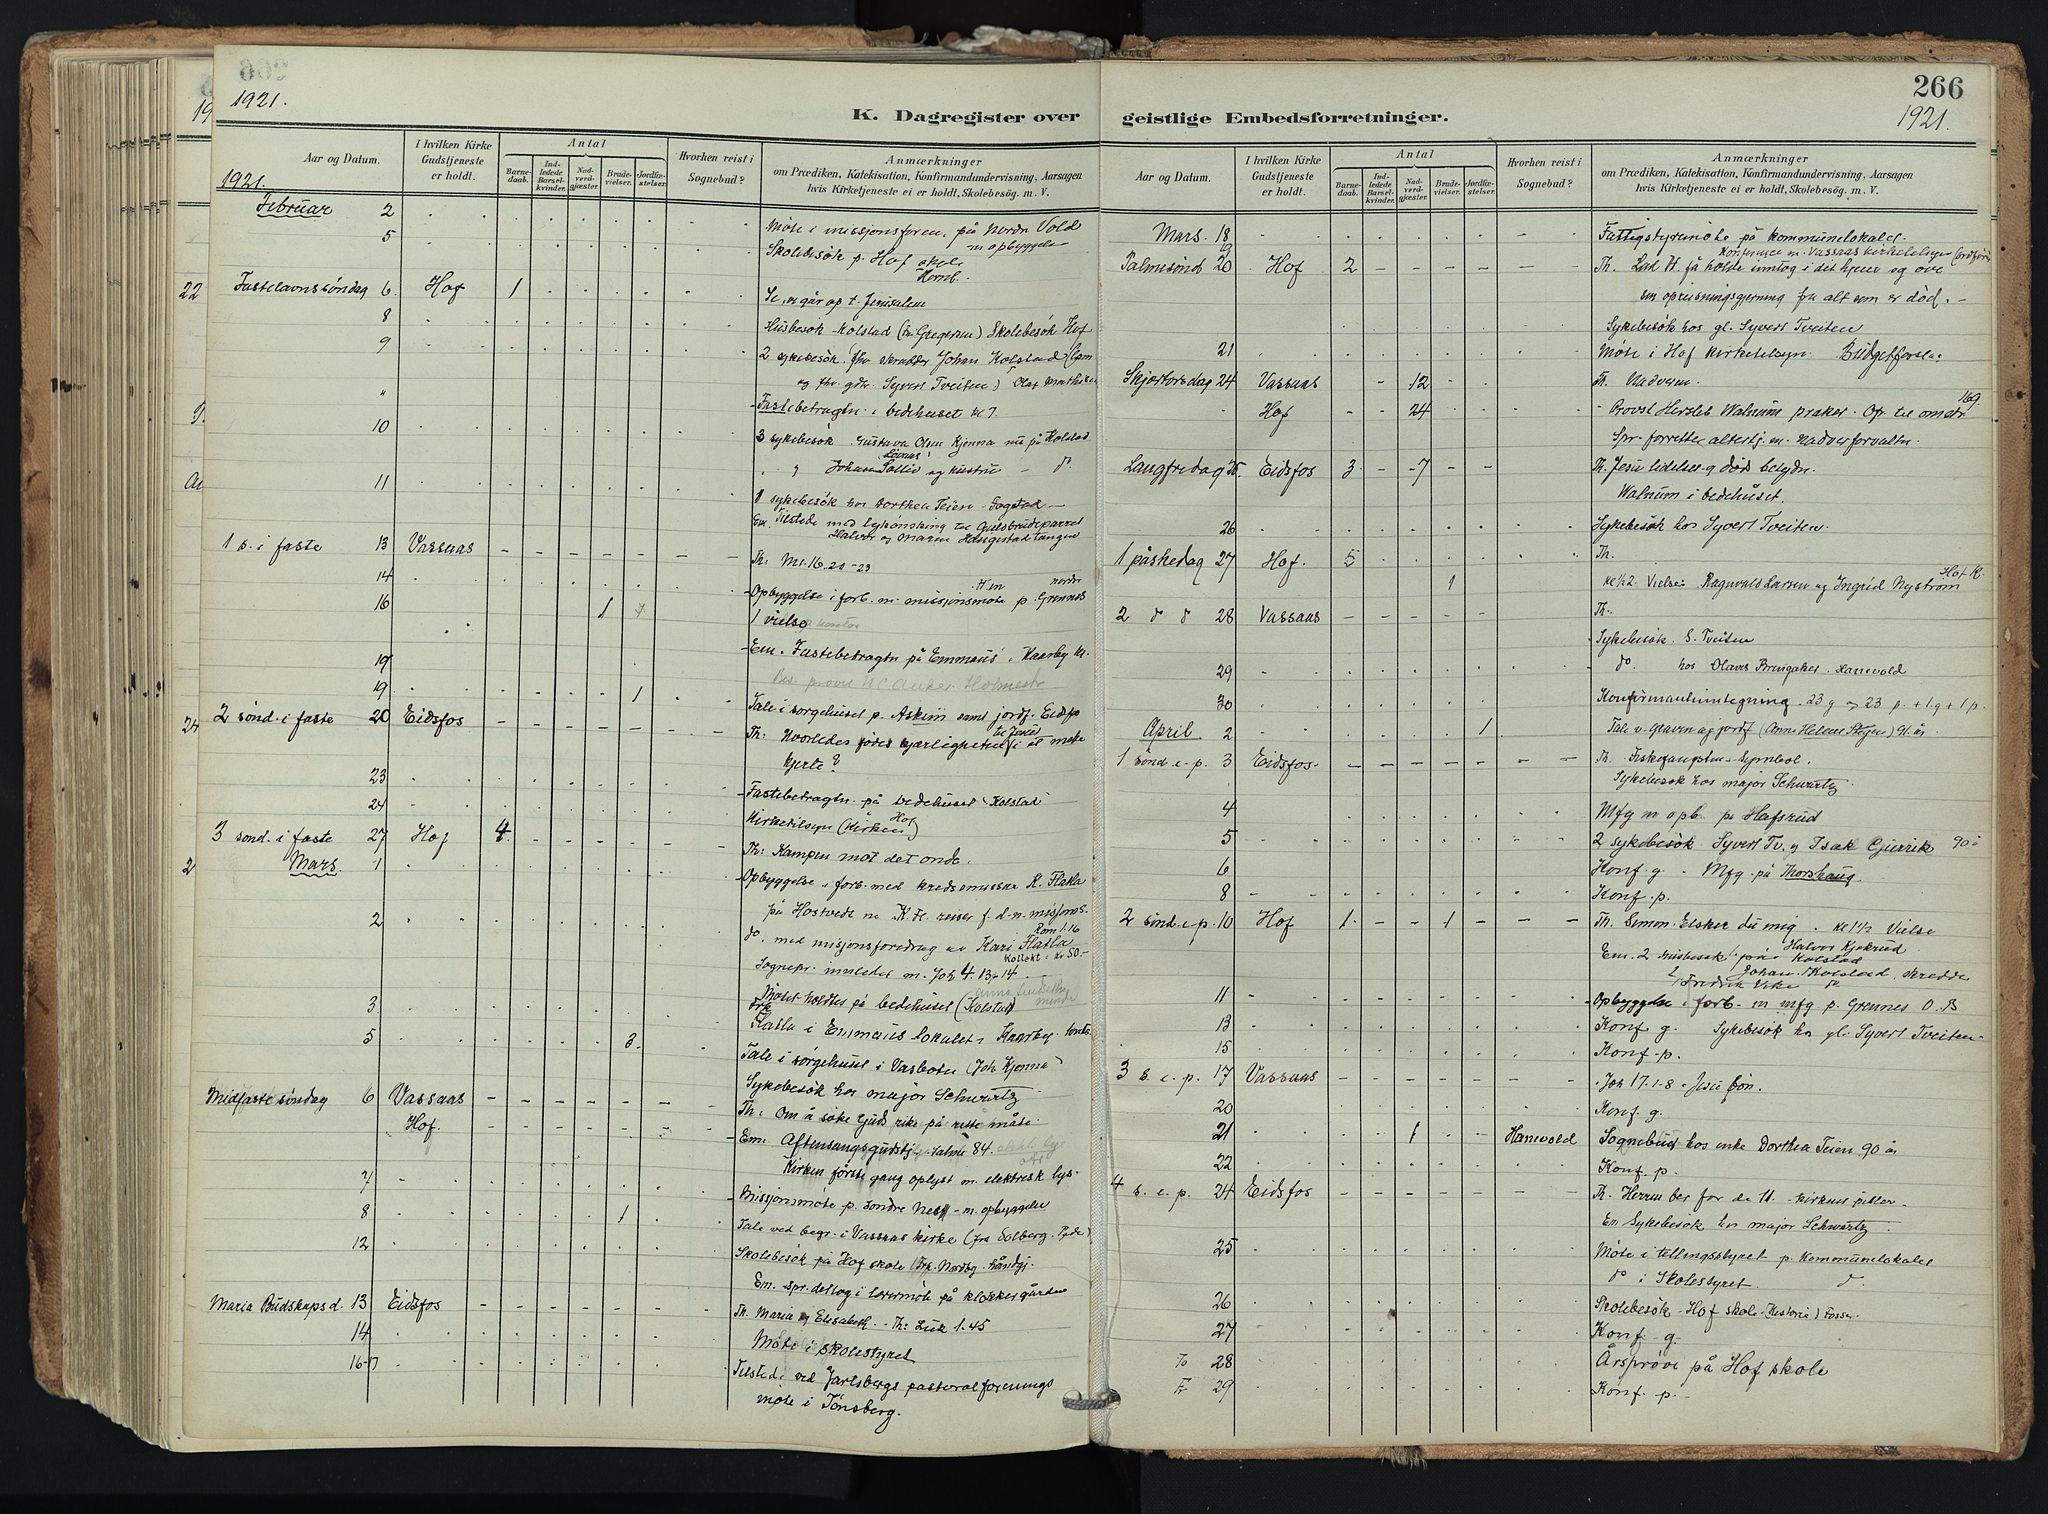 1921.
K. Dagregister over
Aar og Datum.
I hvilken Kirke Gudstjeneste er holdt.
Antal
Barnedaab.
Indledede Barselkvinder.
Nadverdgjester.
Brudevielser.
Jordfæstelser.
Hvorhen reist i Sognebud?
Anmærkninger
om Prædiken, Katekisation, Konfirmandundervisning, Aarsagen
hvis Kirketjeneste ei er holdt, Skolebesøg. m. V.
1921.
Februar 2 Møte i missjonsforen. på Nordre Vold
m opbyggelse
5 Skolebesök p. Hof skole
Fastelavnssöndag 6. Hof 1 Se, vi går op t. Jerusalem
8 Husbesök Kolstad Skolebesök Hof
9 2 sykebesök. Johan Kolstad
Syvert Tveiten)
" Fastebetragtn. i bedehuset kl 7.
10 3 sykebesök Gustava Olsen Kjenna nu på Kolstad
11 1 sykebesök hos Dorthea Teien
Em. Tilstede med lykönskning til Gulbrudeparret
Halvor og Maren Haugestadtangen
1 s. i faste 13 Vassaas Th: Mr. 16. 20-23
14 Opbyggelse i forb. m. missjonsmöte p. Grennes
16 1 1 vielse
Em. Fastebetragtn på Emmaus i Kaarby
19
19 1 Tale i sorgehuset p. Askim samt jordf. Eidsfos
2 sönd. i faste 20 Eidsfos Th: Hvorledes födes kjærligheten til Jesus i et
hjerte?
23 Fastebetragtn. på bedehuset Kolstad
24 Kirketilsyn (Hof kirken)
3 sönd. i faste 27 Hof 4 Th: Kampen mot det onde.
Mars. 1 Opbyggelse i forb. med K. Flatla
på Hostvedt
2 do. med misjonsforedrag av Kari Flatla
Rom 1.16
Kollekt: kr 50.-
Sognepr. innledet m. Joh 4. 13-14.
Mötet holdtes på bedehuset (Kolstad)
3. Flatla i Emmaus lokalet i Kaarby
5 3. Tale i sorgehuset i Vasbotn (Joh Kjenna)
Sykebesök hos major Schwartz
Midfaste söndag 6 Vassaas Th: Om å söke Guds rike på rette måte.
Hof. Em: Aftensangsgudstj. Salme 84.
Kirken förste gang oplyst m. elektrisk lys.
7 Missjonsmöte p. söndre Ness m. opbyggelse
8 1 Tale ved begr. i Vassaas kirke (fra Solberg.
12 Skolebesök på Hof skole
Em. Spr. deltog i lærermöte på klokkergården
Maria Budskapsd. 13 Eidsfos Th. Maria og Elisabeth. Th: Luk 1.45
14 Möte i skolestyret
16-17 Tilstede ved Jarlsbergs pastoralforenings
möte i Tönsberg.
geistlige Embedsforretninger.
266
1921.
Aar og Datum.
I hvilken Kirke Gudstjeneste er holdt.
Antal
Barnedaab.
Indledede Barselkvinder.
Nadverdgjæster.
Brudevielser.
Jordfæstelser.
Hvorhen reist i Sognebud?
Anmærkninger
om Prædiken, Katekisation, Konfirmandundervisning, Aarsagen
hvis Kirketjeneste ei er holdt, Skolebesög. m. V.
Mars. 18 Fattigstyremöte på kommunelokalet.
19 Konferense m. Vassaas kirketilsyn
Palmesönd 20 Hof 2 Th. Lad H. få holde inntog i det hjem og öve
sin opreisningsgjerning fra alt som er död.
Sykebesök hos gl. Syvert Tveiten
21 Möte i Hof kirketilsyn. Budgetforslag
Skjærtorsdag 24 Vassaas 12 Th. Nadveren.
Hof 24 Provst Hersleb Walnum præket.
Spr. forrettet altertj. m. nadverforvaltn.
Langfredag 25. Eidsfos 3 7 Th. Jesu lidelse og döds betydn.
Walnum i bedehuset.
26 Sykebesök hos Syvert Tveiten.
1 påskedag 27 Hof. 5 Th.
1 Vielse: Ragnvald Larsen og Ingrid Nyström
Hof K.
2 d d 28 Vassaas Th.
Sykebesök. S. Tveiten
29 do hos Olaves Bringaker Hanevold
30 Konfirmantinntegning. 23 g og 23 p. + 1 g + 1 p.
April. 2 1 Tale v. graven og jordf (Anne Helene Stegen) 91 år
1 sönd e. p. 3 Eidsfos. Th. Fiskefangstens symbol.
Sykebesök hos major Schwartz
4 Mfg m opb. p. Hafsrud
5 2 sykebesök Syvert Tv. og Isak Gjerrik 90 å
6 Konf. g. Mfg på Thorshaug
8 Konf. p.
2 sönd. e. p. 10 Hof 1. 1 Th. Simon. Elsker du mig. Vielse
Em. 2 husbesök på Kolstad
Halvor Kjekrud
Johan Kolstad, skredder
11 Opbyggelse i forb. m mfg p. Grennes O. B
13 Konf g. Sykebesök hos gl. Syvert Tveiten
15 Konf. p.
3 s. e. p. 17 Vassaas Joh 17. 1-8. Jesu bön.
20 Konf. g.
21 1 Hanevold Sognebud hos enke Dorthea Teien 90 år
22 Konf. p.
4 s. e. p. 24 Eidsfos Th. Herren ber for de 11. kirkens piller
Em Sykebesök hos major Schwartz
25 Möte i tellingsstyret p. kommunelokalet
do i Skolestyret do
26 Skolebesök Hof skole (historie) Fossen.
27 Konf. g.
To 28 Årspröve på Hof skole
Fr 29 Konf. p.